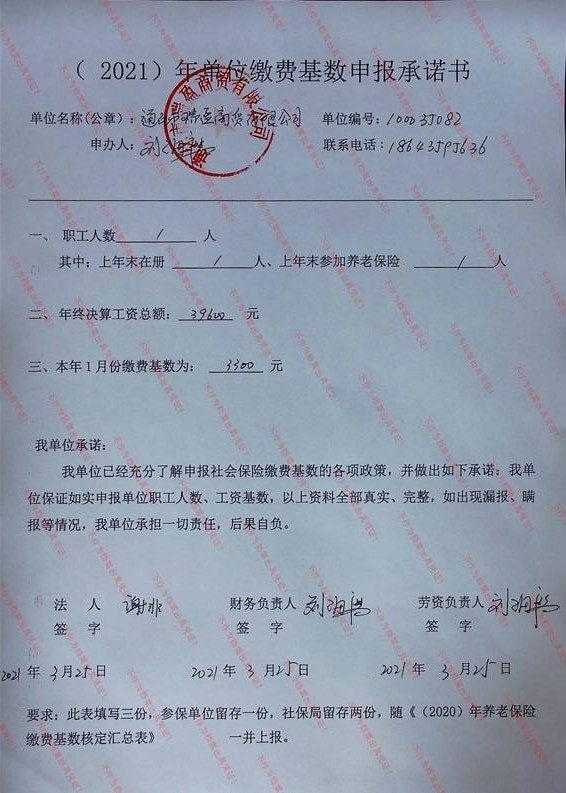 （ 2021）年单位缴费基数申报承诺书
单位名称(公章)：通 商贸有限公司 单位编号：100035082
申办人：刘 联系电话：18643595636
一、 职工人数 1 人
其中：上年末在册 1 人、上年末参加养老保险 1 人
二、年终决算工资总额：39600 元
三、本年1月份缴费基数为： 3300 元
我单位承诺：
我单位已经充分了解申报社会保险缴费基数的各项政策，并做出如下承诺：我单
位保证如实申报单位职工人数、工资基数，以上资料全部真实、完整，如出现漏报、瞒
报等情况，我单位承担一切责任，后果自负。
法 人 谢非 财务负责人 刘 劳资负责人 刘
签 字 签 字 签 字
2021 年 3 月 25 日 2021 年 3 月 25 日 2021 年 3 月 25 日
要求：此表填写三份，参保单位留存一份，社保局留存两份，随《（2020）年养老保险
缴费基数核定汇总表》 一并上报。